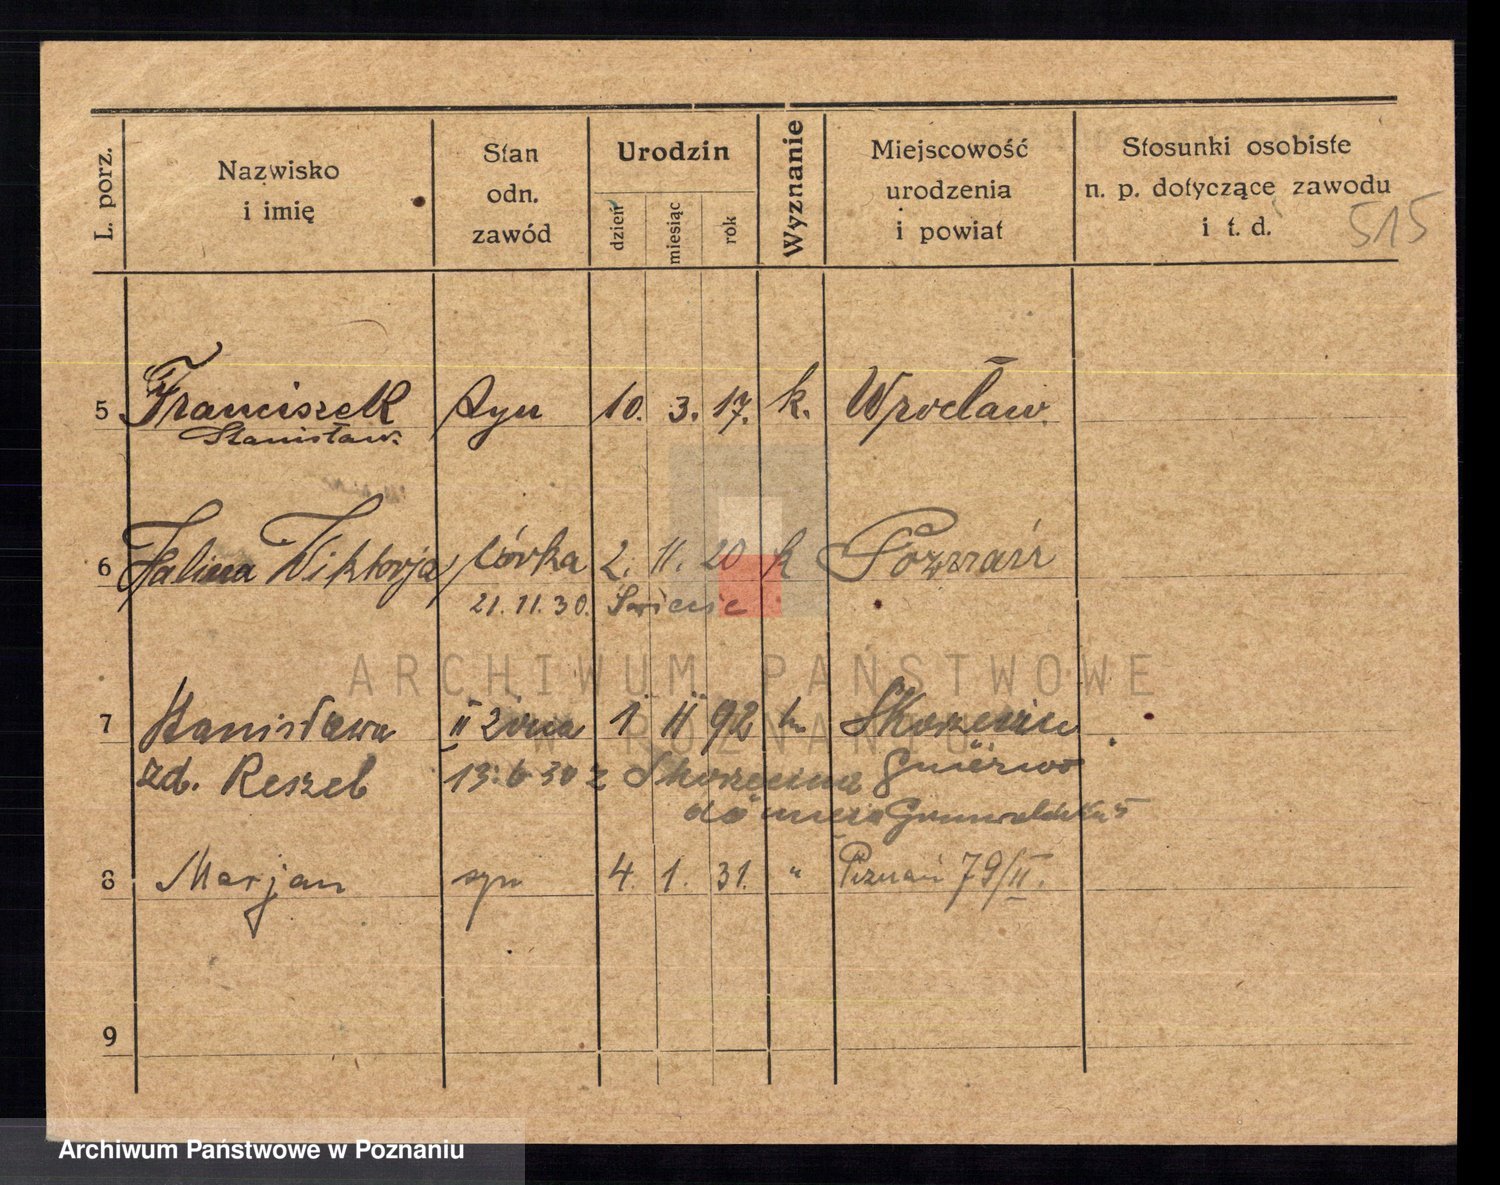 L. porz.
Nazwisko
i imię
Stan
odn.
zawód
Urodzin
dzień
miesiąc
rok
Wyznanie
Miejscowość
urodzenia
i powiat
Stosunki osobiste
n. p. dotyczące zawodu
i t. d.
515
5 Franciszek syn 10. 3. 17. k. Wrocław.
Stanisław.
6 Halina Wiktorja córka 2. 11. 20 k Poznań
21.11.30.
7 Stanisława II żona 1 II 92 k. Skorzęcin
zd. Reszel 13.6 30 z Skorzęcina
8 Marjan syn 4. 1. 31. " Poznań 79/II.
9
ARCHIWUM PAŃSTWOWE
W POZNANIU
Archiwum Państwowe w Poznaniu